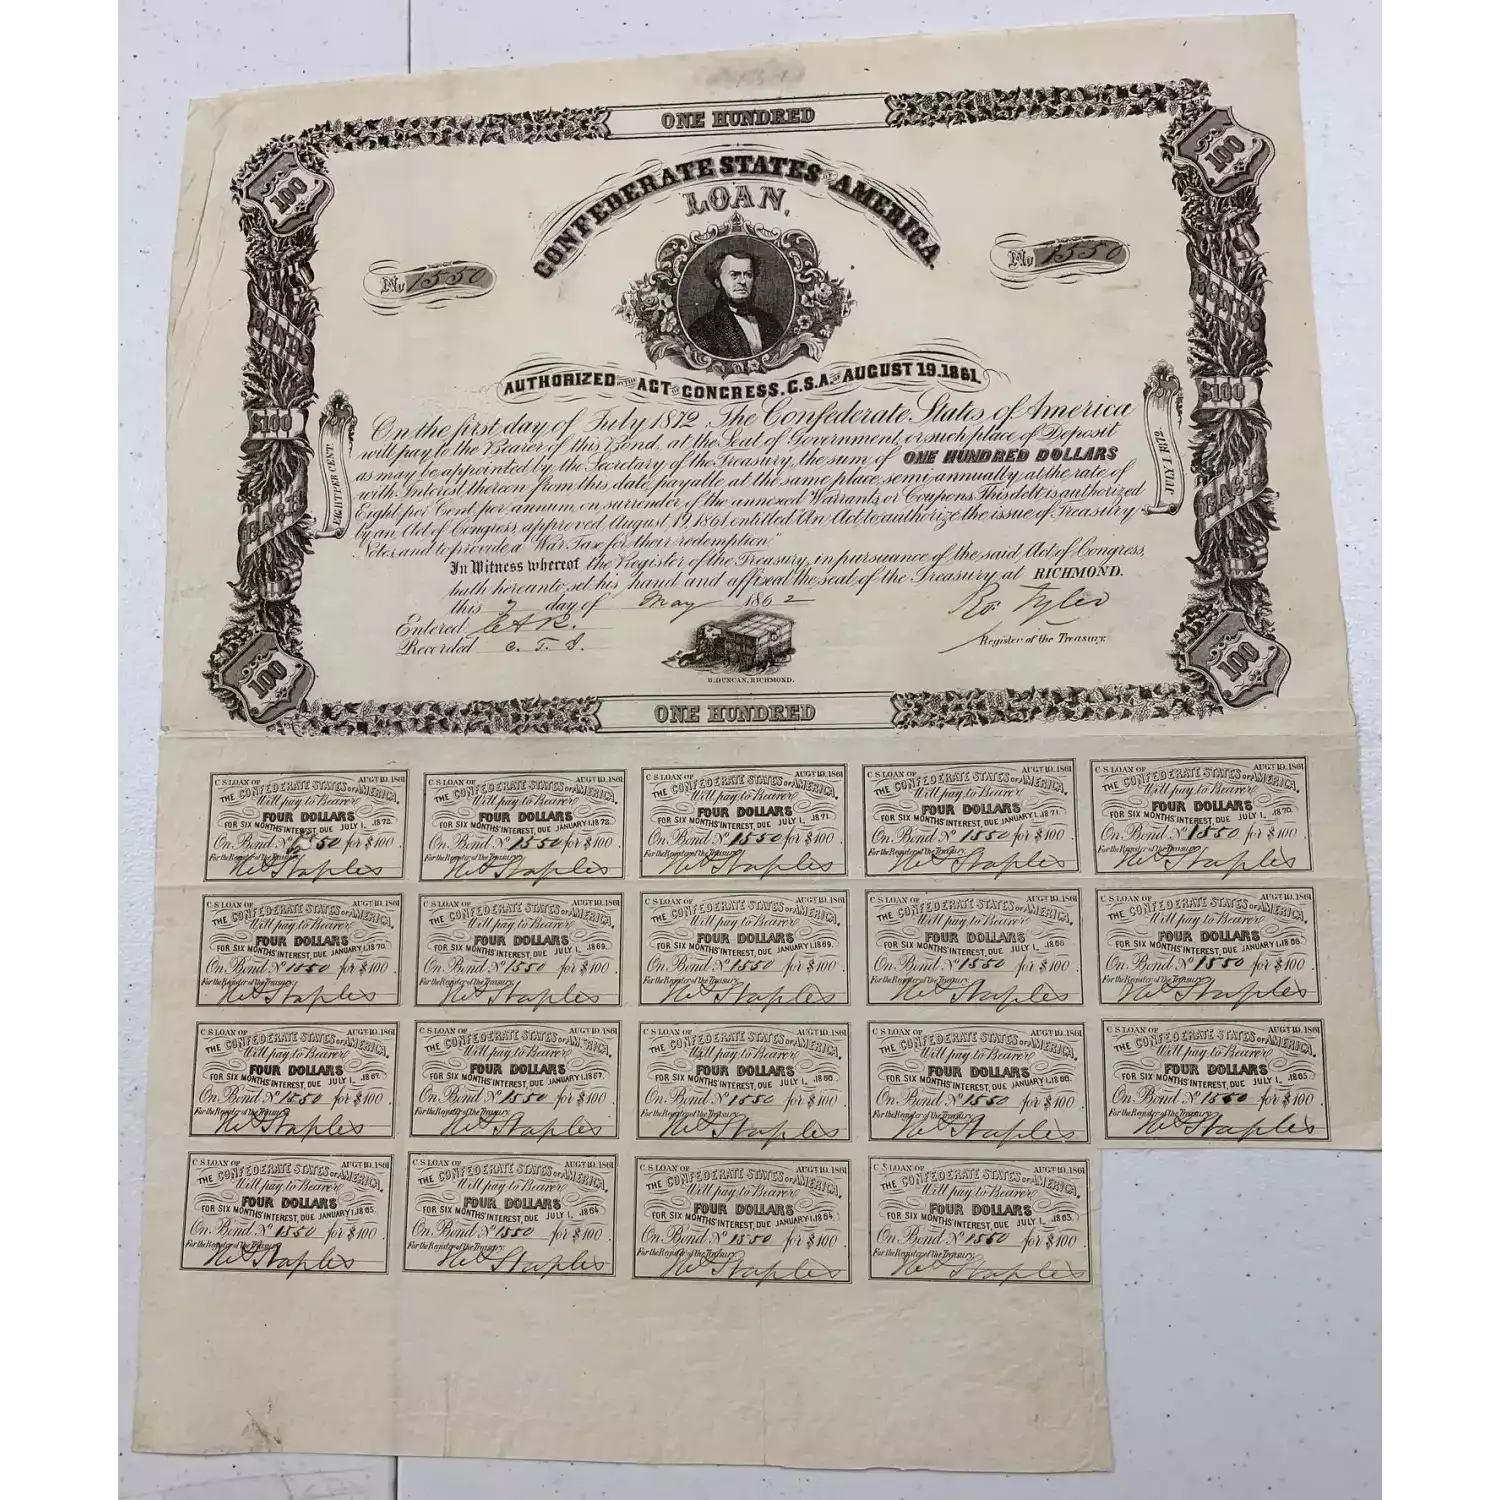 ONE HUNDRED
100
100
CONFEDERATE STATES OF AMERICA
LOAN.
No 1550
No 1550
BONDS
BONDS
AUTHORIZED BY THE ACT OF CONGRESS. C.S.A. OF AUGUST 19.1861.
$100
$100
EIGHT PER CENT.
JULY 1 1872.
EACH
EACH
On the first day of July 1872 The Confederate States of America
will pay to the Bearer of this Bond, at the Seat of Government, or such place of Deposit
as may be appointed by the Secretary of the Treasury, the sum of ONE HUNDRED DOLLARS
with Interest thereon from this date, payable at the same place, semi-annually, at the rate of
Eight per Cent per annum on surrender of the annexed Warrants or Coupons. This debt is authorized
by an Act of Congress approved August 19, 1861, entitled "An Act to authorize the issue of Treasury
Notes, and to provide a War Tax for their redemption"
In Witness whereof the Register of the Treasury, in pursuance of the said Act of Congress,
hath hereunto set his hand and affixed the seal of the Treasury at RICHMOND.
this 7 day of May 1862
Ro. Tyler
Entered
Recorded C. T. J.
Register of the Treasury.
B. DUNCAN, RICHMOND.
100
100
ONE HUNDRED
C S LOAN OF AUGT 19, 1861
THE CONFEDERATE STATES OF AMERICA.
Will pay to Bearer
FOUR DOLLARS
FOR SIX MONTHS' INTEREST, DUE JULY 1, 1872.
On Bond No 1550 for $100.
For the Register of the Treasury.
Staples
C S LOAN OF AUGT 19, 1861
THE CONFEDERATE STATES OF AMERICA.
Will pay to Bearer
FOUR DOLLARS
FOR SIX MONTHS' INTEREST, DUE JANUARY 1, 1872.
On Bond No 1550 for $100.
For the Register of the Treasury.
Staples
C S LOAN OF AUGT 19, 1861
THE CONFEDERATE STATES OF AMERICA.
Will pay to Bearer
FOUR DOLLARS
FOR SIX MONTHS' INTEREST, DUE JULY 1, 1871.
On Bond No 1550 for $100.
For the Register of the Treasury.
Staples
C S LOAN OF AUGT 19, 1861
THE CONFEDERATE STATES OF AMERICA.
Will pay to Bearer
FOUR DOLLARS
FOR SIX MONTHS' INTEREST, DUE JANUARY 1, 1871.
On Bond No 1550 for $100.
For the Register of the Treasury.
Staples
C S LOAN OF AUGT 19, 1861
THE CONFEDERATE STATES OF AMERICA.
Will pay to Bearer
FOUR DOLLARS
FOR SIX MONTHS' INTEREST, DUE JULY 1, 1870.
On Bond No 1550 for $100.
For the Register of the Treasury.
Staples
C S LOAN OF AUGT 19, 1861
THE CONFEDERATE STATES OF AMERICA.
Will pay to Bearer
FOUR DOLLARS
FOR SIX MONTHS' INTEREST, DUE JANUARY 1, 1870.
On Bond No 1550 for $100.
For the Register of the Treasury.
Staples
C S LOAN OF AUGT 19, 1861
THE CONFEDERATE STATES OF AMERICA.
Will pay to Bearer
FOUR DOLLARS
FOR SIX MONTHS' INTEREST, DUE JULY 1, 1869.
On Bond No 1550 for $100.
For the Register of the Treasury.
Staples
C S LOAN OF AUGT 19, 1861
THE CONFEDERATE STATES OF AMERICA.
Will pay to Bearer
FOUR DOLLARS
FOR SIX MONTHS' INTEREST, DUE JANUARY 1, 1869.
On Bond No 1550 for $100.
For the Register of the Treasury.
Staples
C S LOAN OF AUGT 19, 1861
THE CONFEDERATE STATES OF AMERICA.
Will pay to Bearer
FOUR DOLLARS
FOR SIX MONTHS' INTEREST, DUE JULY 1, 1868.
On Bond No 1550 for $100.
For the Register of the Treasury.
Staples
C S LOAN OF AUGT 19, 1861
THE CONFEDERATE STATES OF AMERICA.
Will pay to Bearer
FOUR DOLLARS
FOR SIX MONTHS' INTEREST, DUE JANUARY 1, 1868.
On Bond No 1550 for $100.
For the Register of the Treasury.
Staples
C S LOAN OF AUGT 19, 1861
THE CONFEDERATE STATES OF AMERICA.
Will pay to Bearer
FOUR DOLLARS
FOR SIX MONTHS' INTEREST, DUE JULY 1, 1867.
On Bond No 1550 for $100.
For the Register of the Treasury.
Staples
C S LOAN OF AUGT 19, 1861
THE CONFEDERATE STATES OF AMERICA.
Will pay to Bearer
FOUR DOLLARS
FOR SIX MONTHS' INTEREST, DUE JANUARY 1, 1867.
On Bond No 1550 for $100.
For the Register of the Treasury.
Staples
C S LOAN OF AUGT 19, 1861
THE CONFEDERATE STATES OF AMERICA.
Will pay to Bearer
FOUR DOLLARS
FOR SIX MONTHS' INTEREST, DUE JULY 1, 1866.
On Bond No 1550 for $100.
For the Register of the Treasury.
Staples
C S LOAN OF AUGT 19, 1861
THE CONFEDERATE STATES OF AMERICA.
Will pay to Bearer
FOUR DOLLARS
FOR SIX MONTHS' INTEREST, DUE JANUARY 1, 1866.
On Bond No 1550 for $100.
For the Register of the Treasury.
Staples
C S LOAN OF AUGT 19, 1861
THE CONFEDERATE STATES OF AMERICA.
Will pay to Bearer
FOUR DOLLARS
FOR SIX MONTHS' INTEREST, DUE JULY 1, 1865.
On Bond No 1550 for $100.
For the Register of the Treasury.
Staples
C S LOAN OF AUGT 19, 1861
THE CONFEDERATE STATES OF AMERICA.
Will pay to Bearer
FOUR DOLLARS
FOR SIX MONTHS' INTEREST, DUE JANUARY 1, 1865.
On Bond No 1550 for $100.
For the Register of the Treasury.
Staples
C S LOAN OF AUGT 19, 1861
THE CONFEDERATE STATES OF AMERICA.
Will pay to Bearer
FOUR DOLLARS
FOR SIX MONTHS' INTEREST, DUE JULY 1, 1864.
On Bond No 1550 for $100.
For the Register of the Treasury.
Staples
C S LOAN OF AUGT 19, 1861
THE CONFEDERATE STATES OF AMERICA.
Will pay to Bearer
FOUR DOLLARS
FOR SIX MONTHS' INTEREST, DUE JANUARY 1, 1864.
On Bond No 1550 for $100.
For the Register of the Treasury.
Staples
C S LOAN OF AUGT 19, 1861
THE CONFEDERATE STATES OF AMERICA.
Will pay to Bearer
FOUR DOLLARS
FOR SIX MONTHS' INTEREST, DUE JULY 1, 1863.
On Bond No 1550 for $100.
For the Register of the Treasury.
Staples